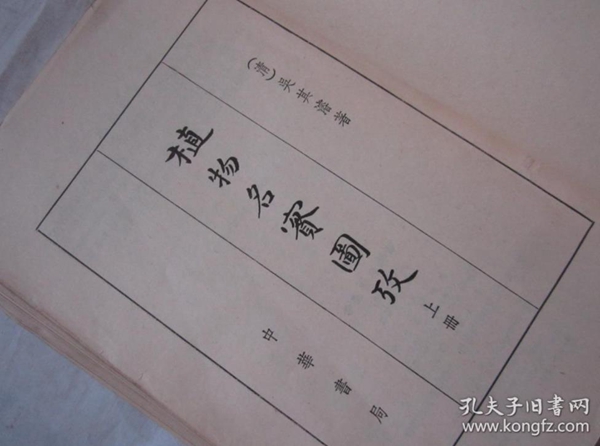 (清)吳其濬著
植物名實圖攷
上冊
中華書局
孔夫子旧书网
www.kongfz.com